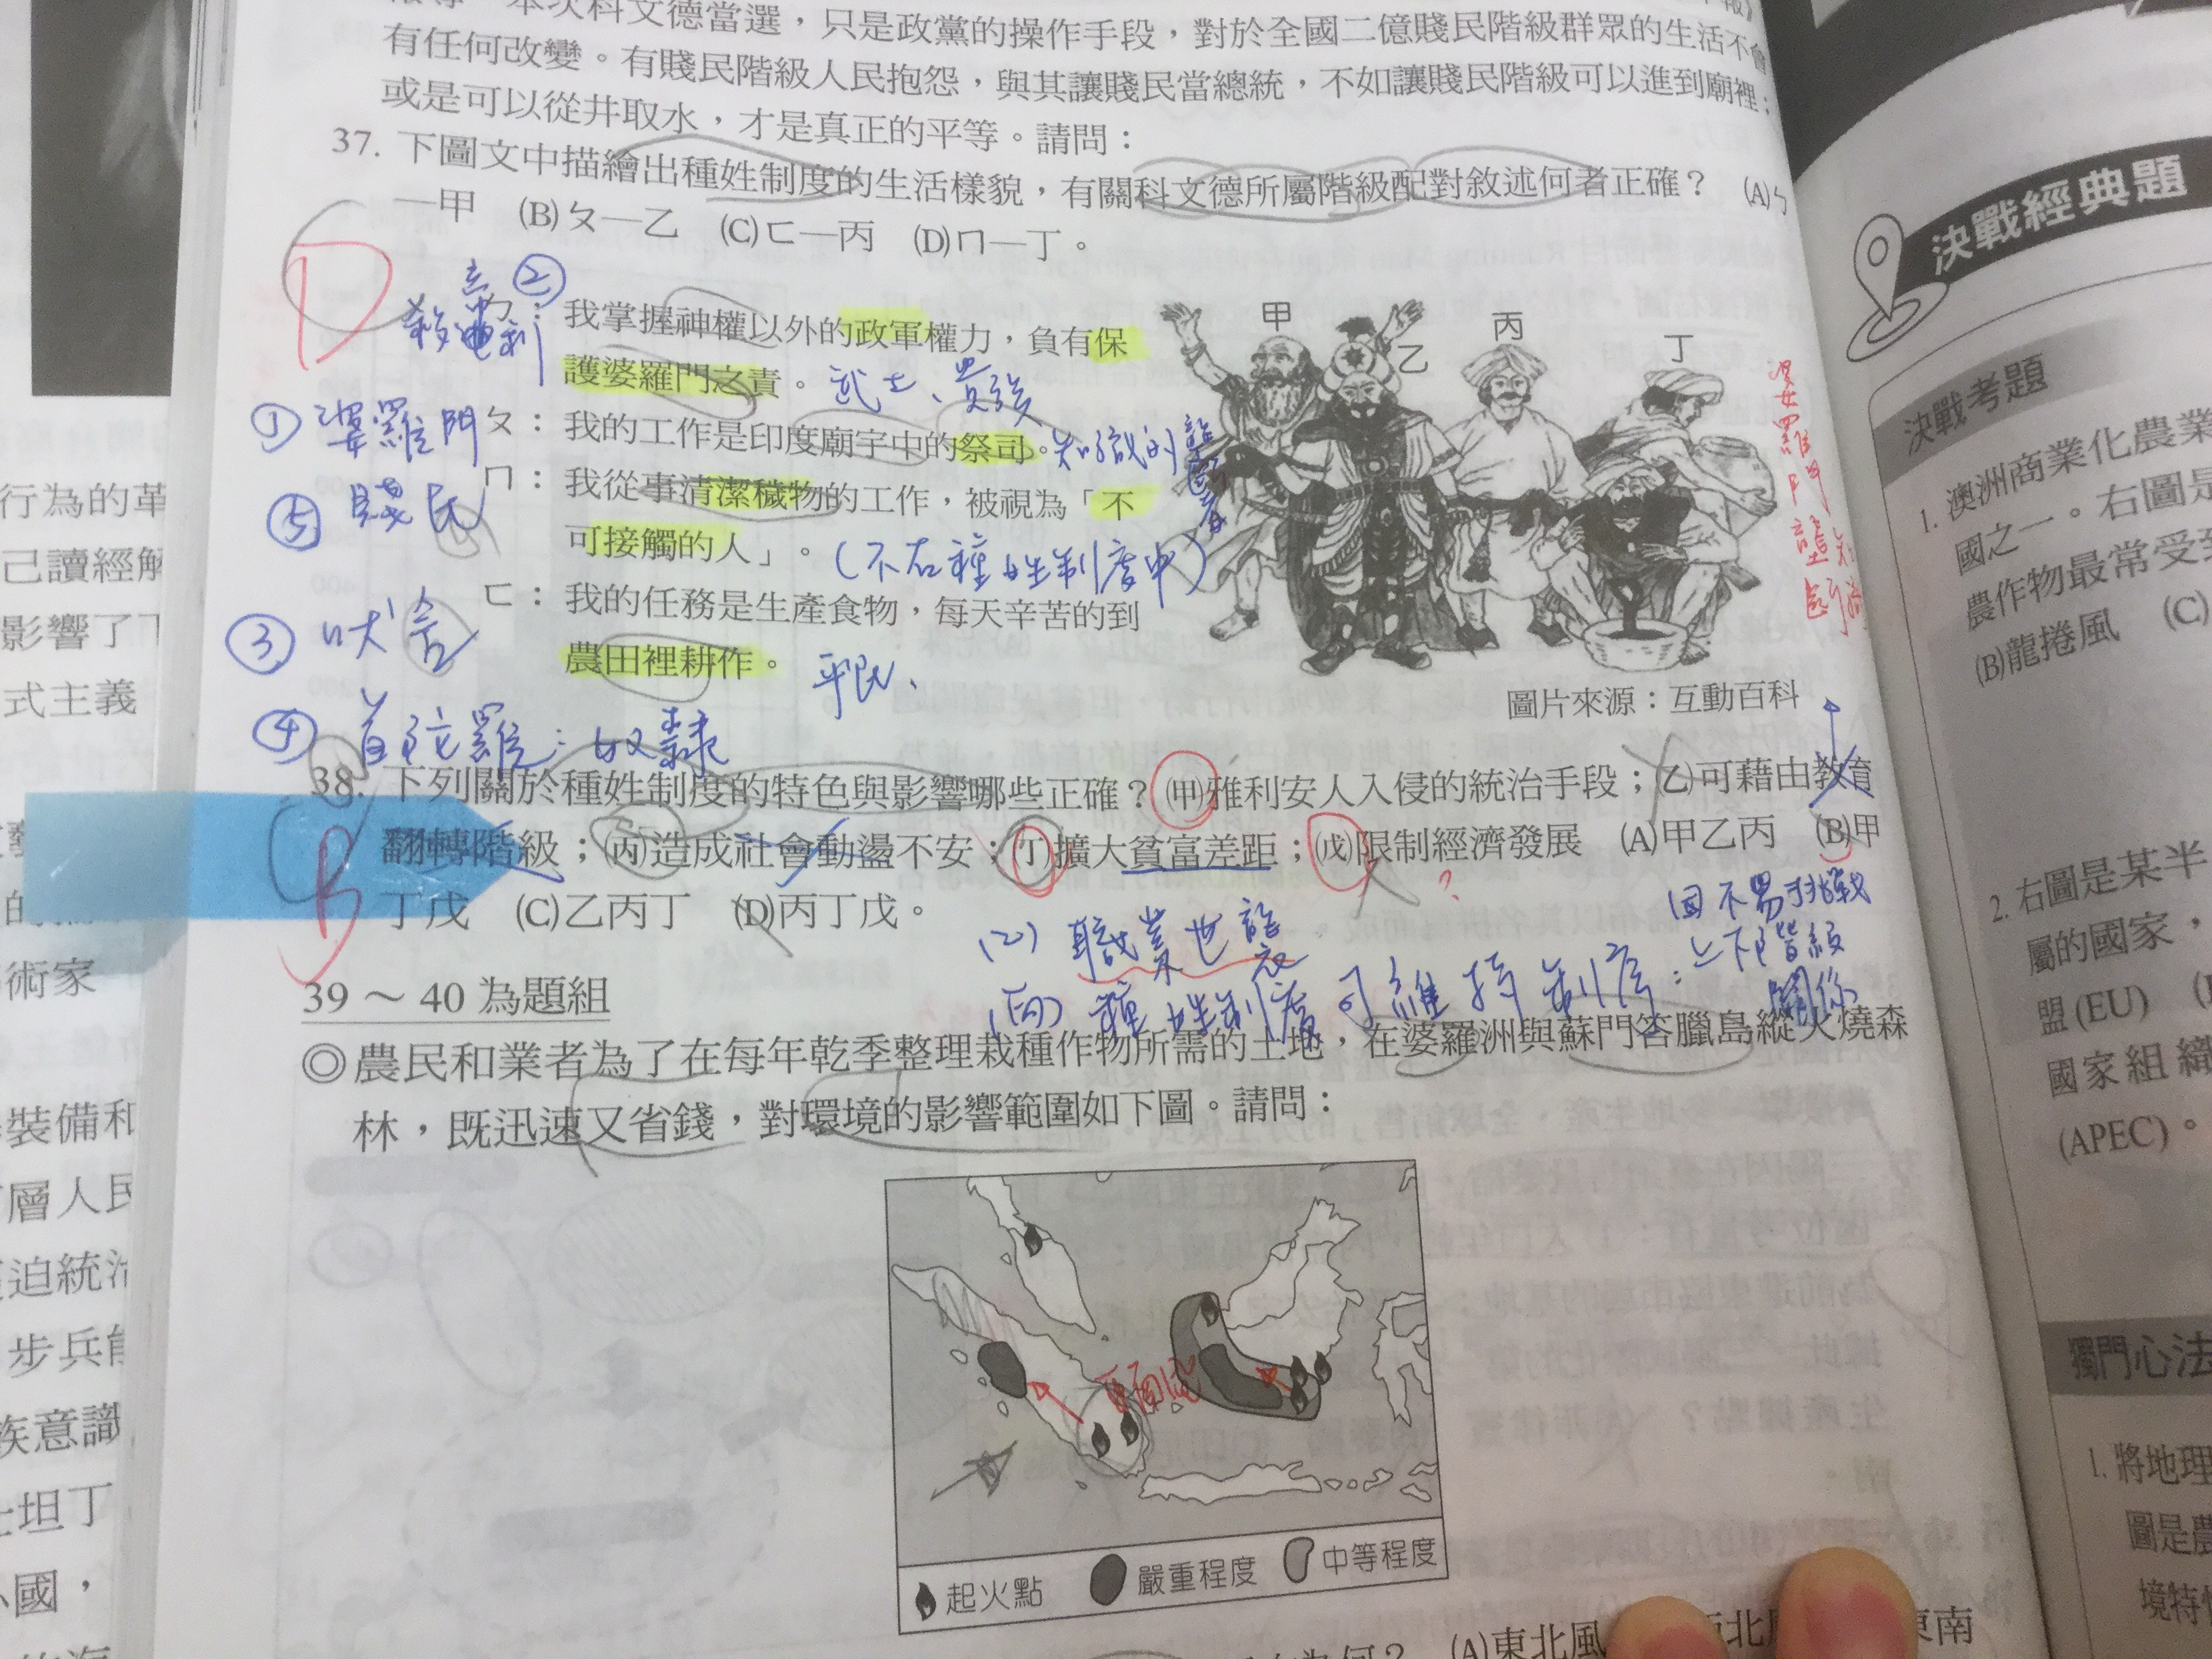 本次科文德當選，只是政黨的操作手段，對於全國二億賤民階級群眾的生活不會
有任何改變。有賤民階級人民抱怨，與其讓賤民當總統，不如讓賤民階級可以進到廟裡；
或是可以從井取水，才是真正的平等。請問：
37. 下圖文中描繪出種姓制度的生活樣貌，有關科文德所屬階級配對敘述何者正確？ (A)ㄅ
—甲 (B)ㄆ—乙 (C)ㄈ—丙 (D)ㄇ—丁。
D
②
ㄅ：我掌握神權以外的政軍權力，負有保
護婆羅門之責。武士、貴族
① 婆羅門 ㄆ：我的工作是印度廟宇中的祭司。知識的
⑤ 賤民 ㄇ：我從事清潔穢物的工作，被視為「不
可接觸的人」。(不在種姓制度中)
③ 吠舍 ㄈ：我的任務是生產食物，每天辛苦的到
農田裡耕作。平民、
④ 首陀羅：奴隸
甲
乙
丙
丁
婆羅門
圖片來源：互動百科
38. 下列關於種姓制度的特色與影響哪些正確？(甲)雅利安人入侵的統治手段；(乙)可藉由教育
翻轉階級；(丙)造成社會動盪不安；(丁)擴大貧富差距；(戊)限制經濟發展 (A)甲乙丙 (B)甲
丁戊 (C)乙丙丁 (D)丙丁戊。
B
?
因不易挑戰
上下階級
關係
(2) 職業世襲
(丙) 種姓制度可維持制序：
39～40 為題組
◎農民和業者為了在每年乾季整理栽種作物所需的土地，在婆羅洲與蘇門答臘島縱火燒森
林，既迅速又省錢，對環境的影響範圍如下圖。請問：
起火點 嚴重程度 中等程度
為何？ (A)東北風
東南
行為的革
己讀經解
影響了
式主義
術家
裝備和
層人民
迫統治
步兵
族意識
坦丁
國，
決戰經典題
決戰考題
1. 澳洲商業化農業
國之一。右圖是
農作物最常受到
(B)龍捲風 (C)
2. 右圖是某半
屬的國家，
盟(EU)
國家組織
(APEC)。
獨門心法
1. 將地理
圖是農
境特性